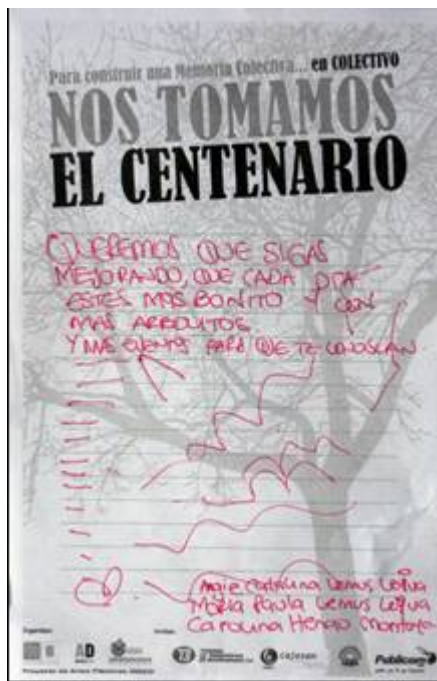 Para construir una Memoria Colectiva... en COLECTIVO
NOS TOMAMOS
EL CENTENARIO
QUEREMOS QUE SIGAS
MEJORANDO, QUE CADA DIA
ESTES MAS BONITO Y CON
MAS ARBOLITOS
Y MAS EVENTOS PARA QUE TE CONOSCAN
Angie Catalina Lemus Leiva
Maria Paula Lemus Leiva
Carolina Henao Montoya
AD
cajasan
Publicar